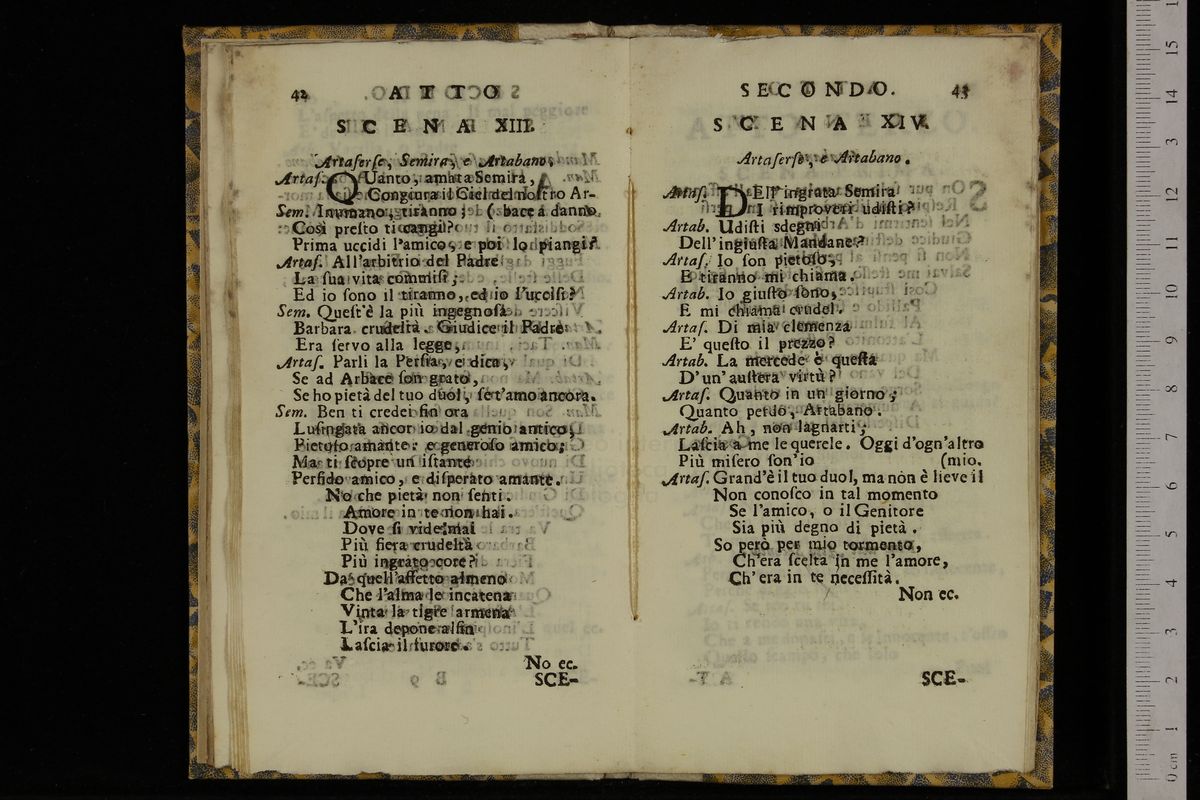 42 ATTO
SCENA XIII.
Artaſerſe, Semira, e Artabano.
Artaſ. QUanto, amata Semira,
Congiura il Ciel del noſtro Ar-
Sem. Inumano, tiranno; (bace a danno.
Così preſto ti cangi?
Prima uccidi l'amico, e poi lo piangi?
Artaſ. All'arbitrio del Padre
La ſua vita commiſi;
Ed io ſono il tiranno, ed io l'ucciſi?
Sem. Queſt'è la più ingegnoſa
Barbara crudeltà. Giudice il Padre
Era ſervo alla legge,
Artaſ. Parli la Perſia, e dica,
Se ad Arbace ſon grato,
Se ho pietà del tuo duol, ſe t'amo ancora.
Sem. Ben ti credei fin ora
Luſingata ancor io dal genio antico,
Pietoſo amante: e generoſo amico;
Ma ti ſcopre un iſtante
Perfido amico, e diſperato amante.
No che pietà non ſenti.
Amore in te non hai.
Dove ſi vide mai
Più fiera crudeltà
Più ingrato core?
Da quell'affetto almeno
Che l'alma le incatena
Vinta la tigre armena
L'ira depone alfin
Laſcia il furore.
No ec.
SCE-
SECONDO. 43
SCENA XIV.
Artaſerſe, e Artabano.
Artaſ. DEll' ingrata Semira
I rimproveri udiſti?
Artab. Udiſti sdegni
Dell'ingiuſta Mandane?
Artaſ. Io ſon pietoſo,
E tiranno mi chiama.
Artab. Io giuſto ſono,
E mi chiama crudel.
Artaſ. Di mia clemenza
E' queſto il prezzo?
Artab. La mercede è queſta
D'un'auſtera virtù?
Artaſ. Quanto in un giorno;
Quanto perdo, Artabano.
Artab. Ah, non lagnarti;
Laſcia a me le querele. Oggi d'ogn'altro
Più miſero ſon'io (mio.
Artaſ. Grand'è il tuo duol, ma non è lieve il
Non conoſco in tal momento
Se l'amico, o il Genitore
Sia più degno di pietà.
So però per mio tormento,
Ch'era ſcelta in me l'amore,
Ch'era in te neceſſità.
Non ec.
SCE-